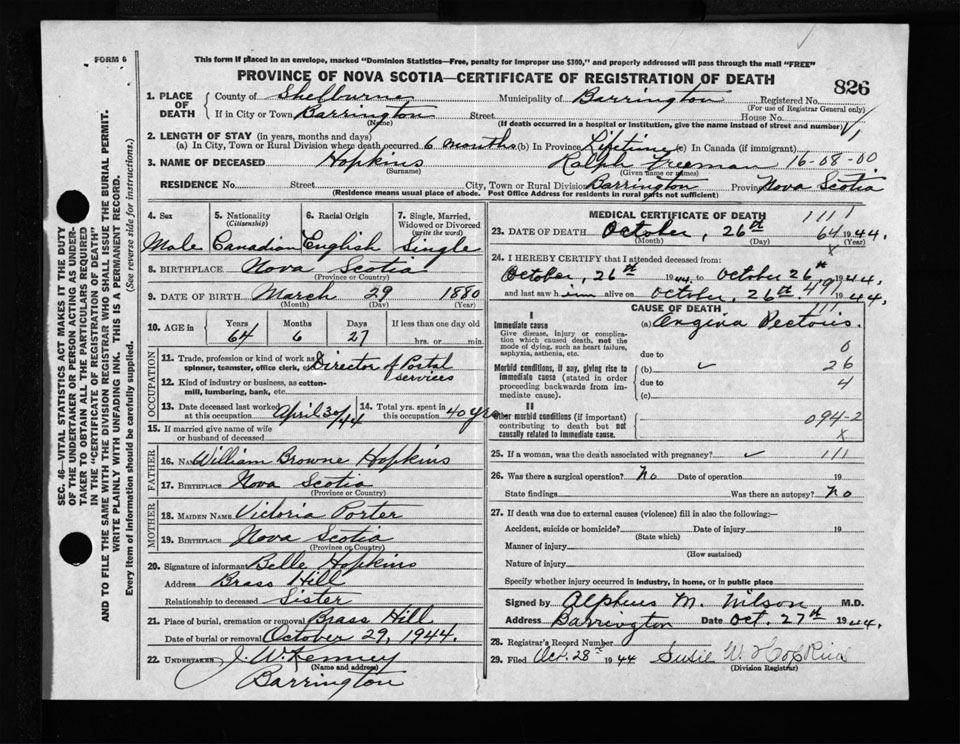 FORM 6
This form if placed in an envelope, marked "Dominion Statistics—Free, penalty for improper use $300," and properly addressed will pass through the mail "FREE"
PROVINCE OF NOVA SCOTIA—CERTIFICATE OF REGISTRATION OF DEATH
826
SEC. 46—VITAL STATISTICS ACT MAKES IT THE DUTY
OF THE UNDERTAKER OR PERSON ACTING AS UNDER-
TAKER TO OBTAIN ALL THE PARTICULARS REQUIRED
IN THE "CERTIFICATE OF REGISTRATION OF DEATH"
AND TO FILE THE SAME WITH THE DIVISION REGISTRAR WHO SHALL ISSUE THE BURIAL PERMIT.
WRITE PLAINLY WITH UNFADING INK. THIS IS A PERMANENT RECORD.
Every item of information should be carefully supplied. (See reverse side for instructions.)
1. PLACE OF DEATH County of Shelburne Municipality of Barrington Registered No.
(For use of Registrar General only)
If in City or Town Barrington Street House No.
(Name) (If death occurred in a hospital or institution, give the name instead of street and number)
2. LENGTH OF STAY (in years, months and days)
(a) In City, Town or Rural Division where death occurred 6 months (b) In Province Lifetime (c) In Canada (if immigrant)
3. NAME OF DECEASED Hopkins Ralph Freeman 16-08-00
(Surname) (Given name or names)
RESIDENCE No. Street City, Town or Rural Division Barrington Province Nova Scotia
(Residence means usual place of abode. Post Office Address for residents in rural parts not sufficient)
4. Sex Male
5. Nationality (Citizenship) Canadian
6. Racial Origin English
7. Single, Married, Widowed or Divorced (write the word) Single
8. BIRTHPLACE Nova Scotia
(Province or Country)
9. DATE OF BIRTH March 29 1880
(Month) (Day) (Year)
10. AGE in Years Months Days If less than one day old
64 6 27 hrs. or min.
OCCUPATION
11. Trade, profession or kind of work as spinner, teamster, office clerk, etc. Director of Postal services
12. Kind of industry or business, as cotton-mill, lumbering, bank, etc.
13. Date deceased last worked at this occupation April 30/44
14. Total yrs. spent in this occupation 40 yrs
15. If married give name of wife or husband of deceased
FATHER
16. Name William Browne Hopkins
17. BIRTHPLACE Nova Scotia
(Province or Country)
MOTHER
18. MAIDEN NAME Victoria Porter
19. BIRTHPLACE Nova Scotia
(Province or Country)
20. Signature of informant Belle Hopkins
Address Brass Hill
Relationship to deceased Sister
21. Place of burial, cremation or removal Brass Hill
Date of burial or removal October 29, 1944.
22. UNDERTAKER J. W. Kenney
(Name and address)
Barrington
MEDICAL CERTIFICATE OF DEATH 1111
23. DATE OF DEATH October, 26th 64 1944.
(Month) (Day) (Year)
x
24. I HEREBY CERTIFY that I attended deceased from:
October, 26th 1944, to October 26th 1944.
and last saw him alive on October, 26th 49 1944.
CAUSE OF DEATH 111
I
Immediate cause (a) Angina Pectoris.
Give disease, injury or complication which caused death, not the mode of dying, such as heart failure, asphyxia, asthenia, etc.
due to 0
Morbid conditions, if any, giving rise to immediate cause (stated in order proceeding backwards from immediate cause).
(b) ✓ 26
due to 4
(c)
II
Other morbid conditions (if important) contributing to death but not causally related to immediate cause.
094-2
x
25. If a woman, was the death associated with pregnancy? ✓ 111
26. Was there a surgical operation? No Date of operation 19
State findings Was there an autopsy? No
27. If death was due to external causes (violence) fill in also the following:—
Accident, suicide or homicide? Date of injury 19
(State which)
Manner of injury
(How sustained)
Nature of injury
Specify whether injury occurred in industry, in home, or in public place
Signed by Alpheus M. Wilson M.D.
Address Barrington Date Oct. 27th 1944.
28. Registrar's Record Number
29. Filed Oct. 28th 1944 Susie W. Hopkins
(Division Registrar)